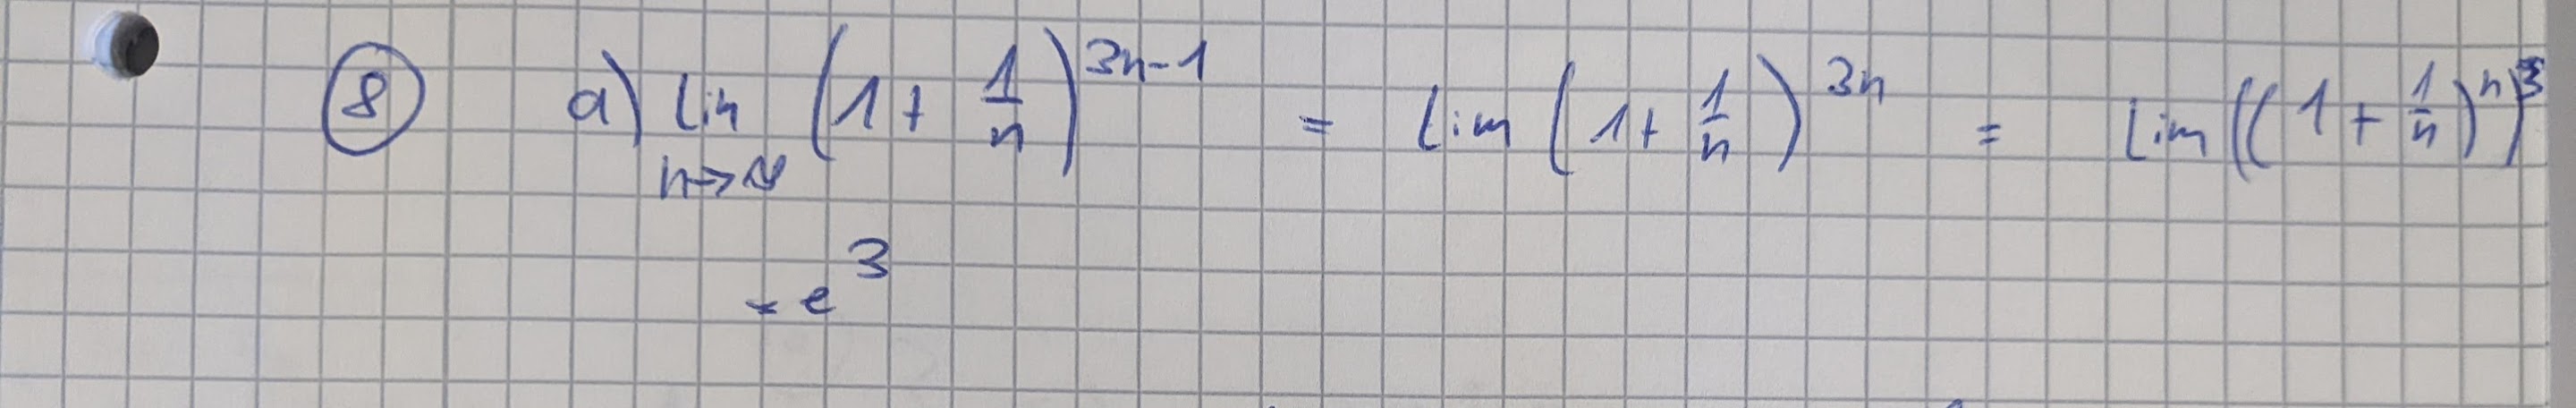 8 a) lim n→∞ (1 + 1/n)^(3n-1) = lim (1 + 1/n)^(3n) = lim ((1 + 1/n)^n)^3
= e^3